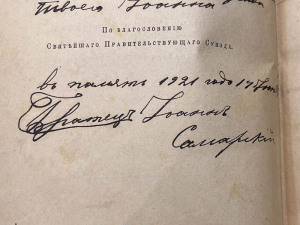 твоего Іоанна
По благословенію
Святѣйшаго Правительствующаго Сѵнода.
въ память 1921 годо 17
Братецъ Іоаннъ
Самарскій